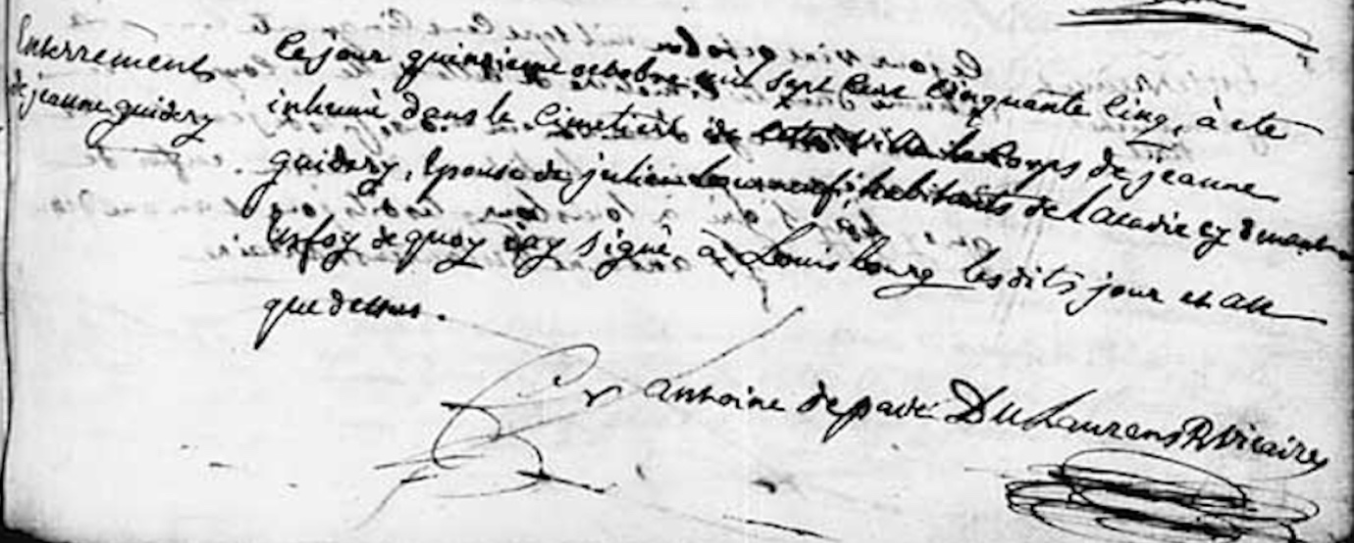 Enterrement
de jeanne guidery
Ce jour quinzieme octobre mil sept cent cinquante cinq, à ete
inhumé dans le Cimetiere de cette ville le Corps de jeanne
guidery, Epouse de julien habitants de l'acadie cy devant
En foy de quoy j'ay signé à Louisbourg lesdits jour et an
que dessus.
fr antoine de padoüe DuLaurens R vicaire